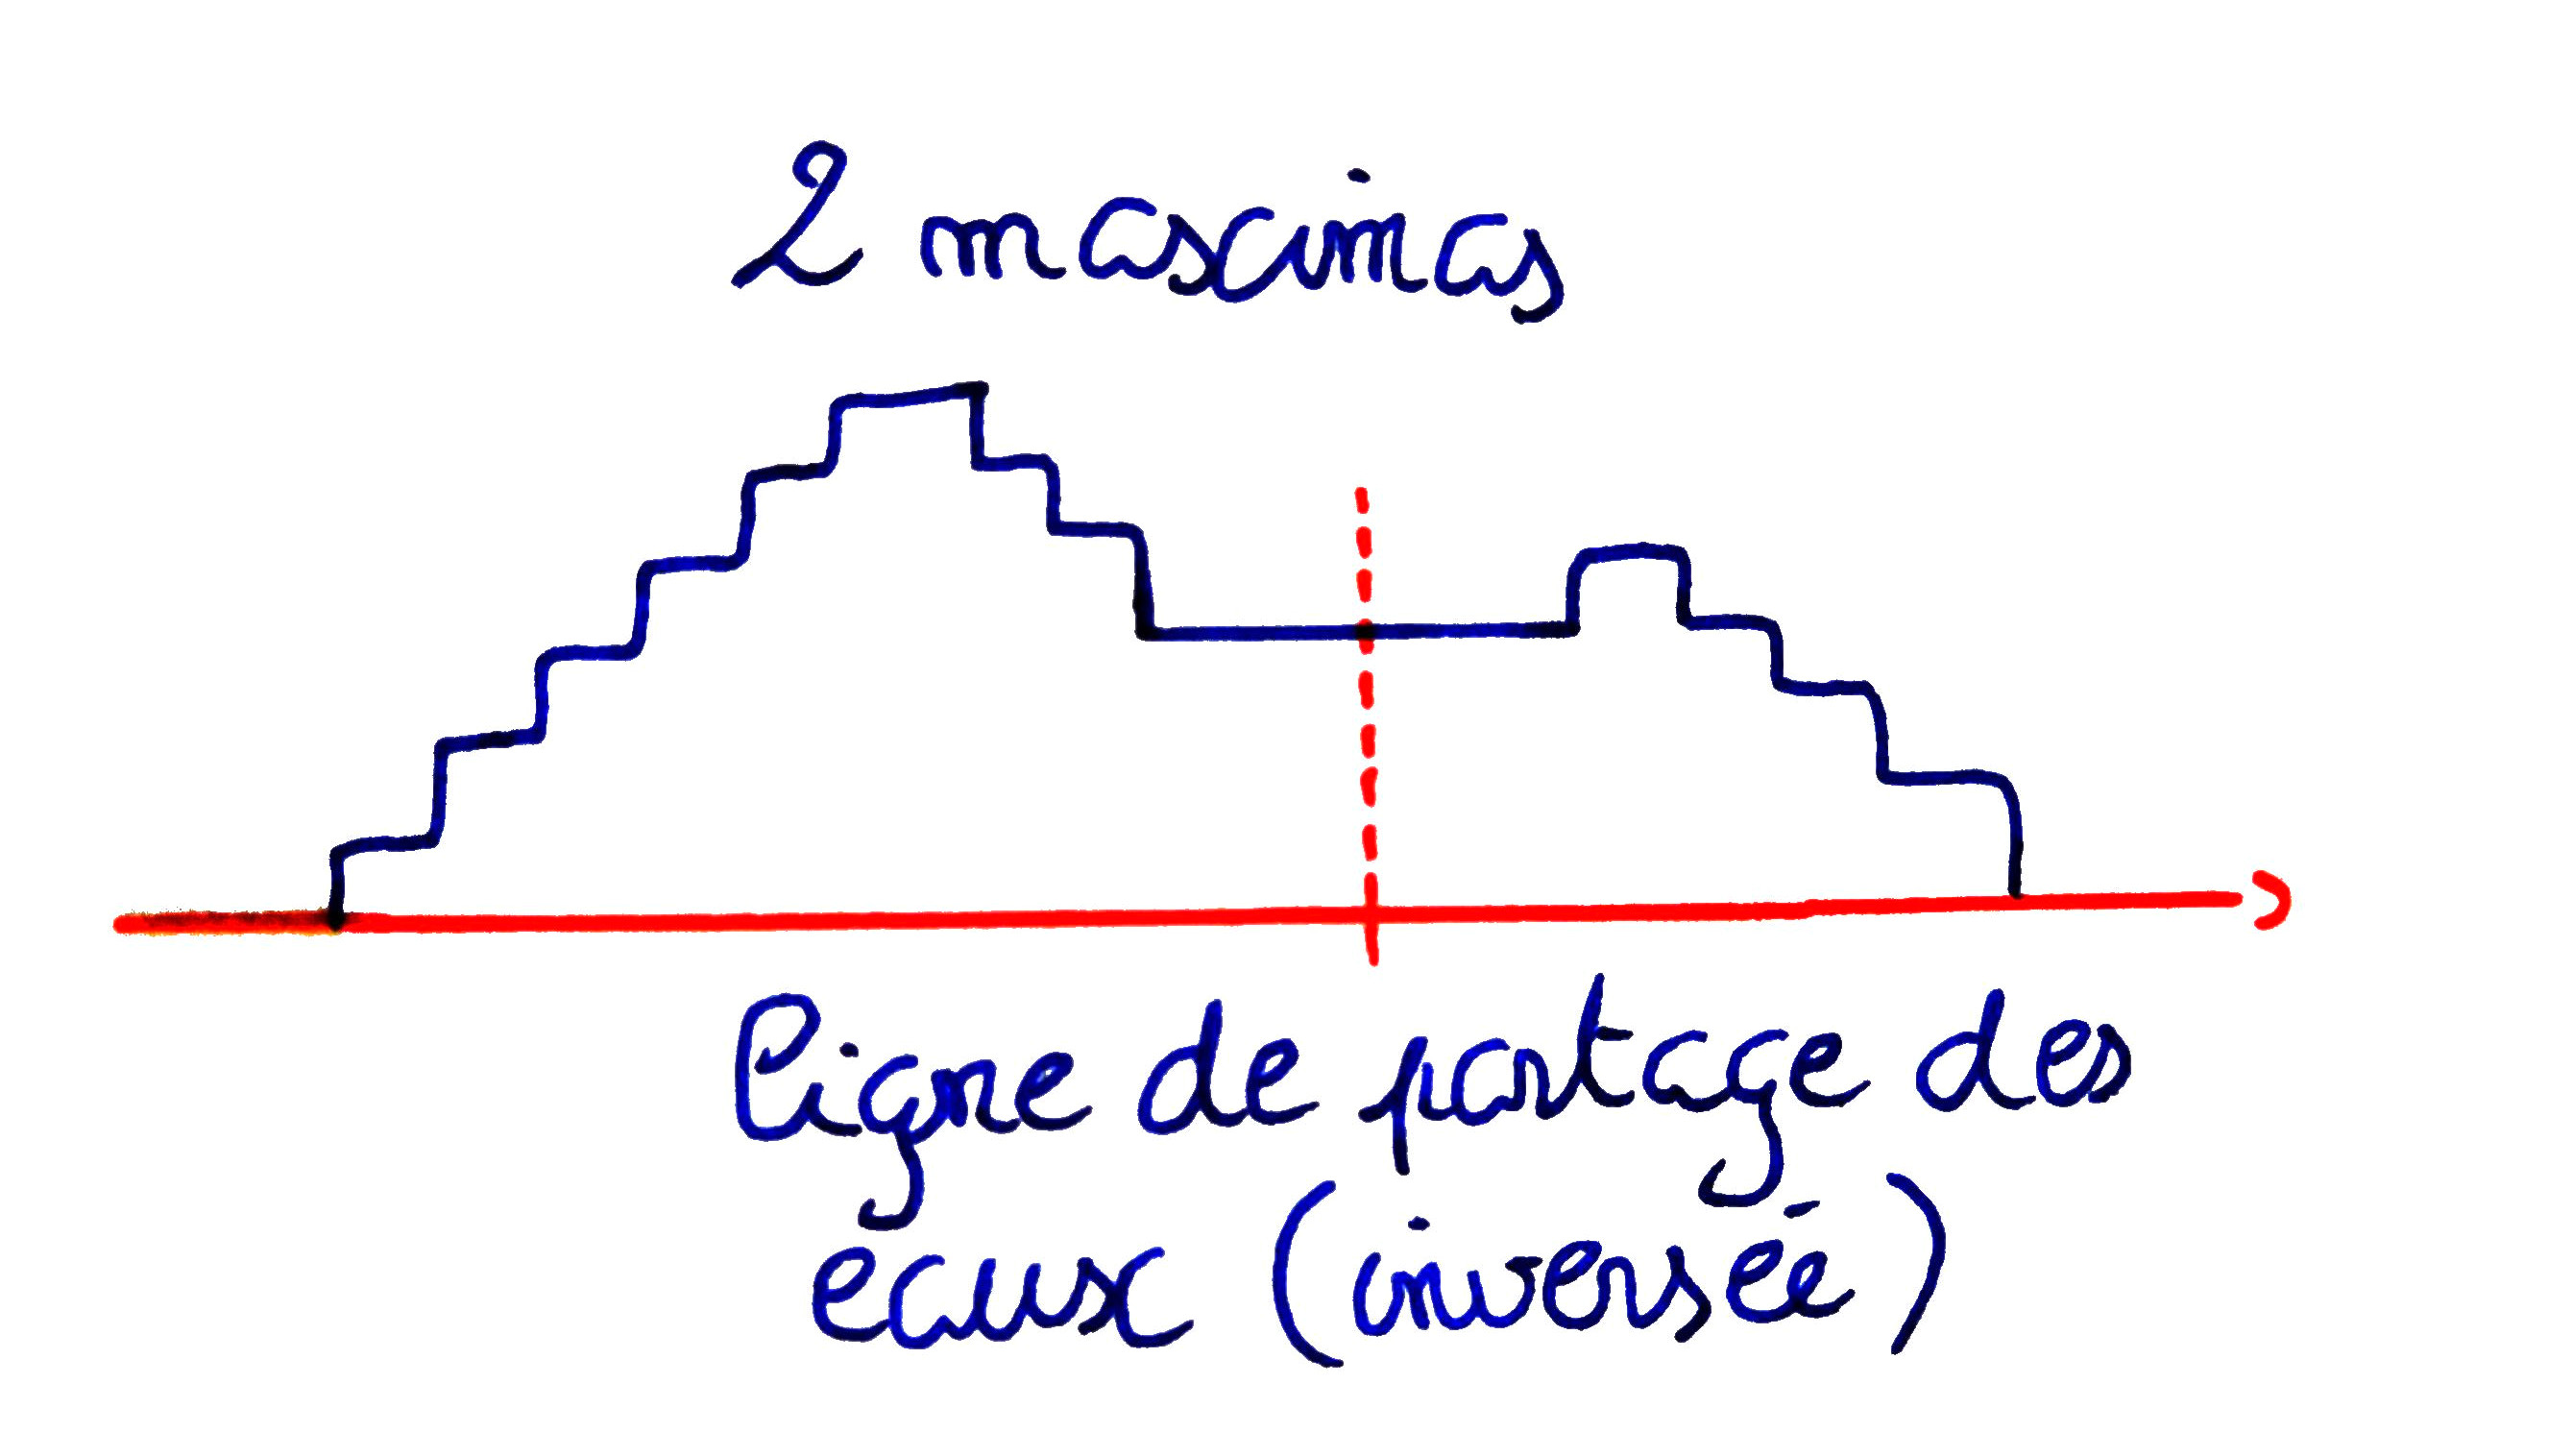 2 maximas
ligne de partage des
eaux (inversée)